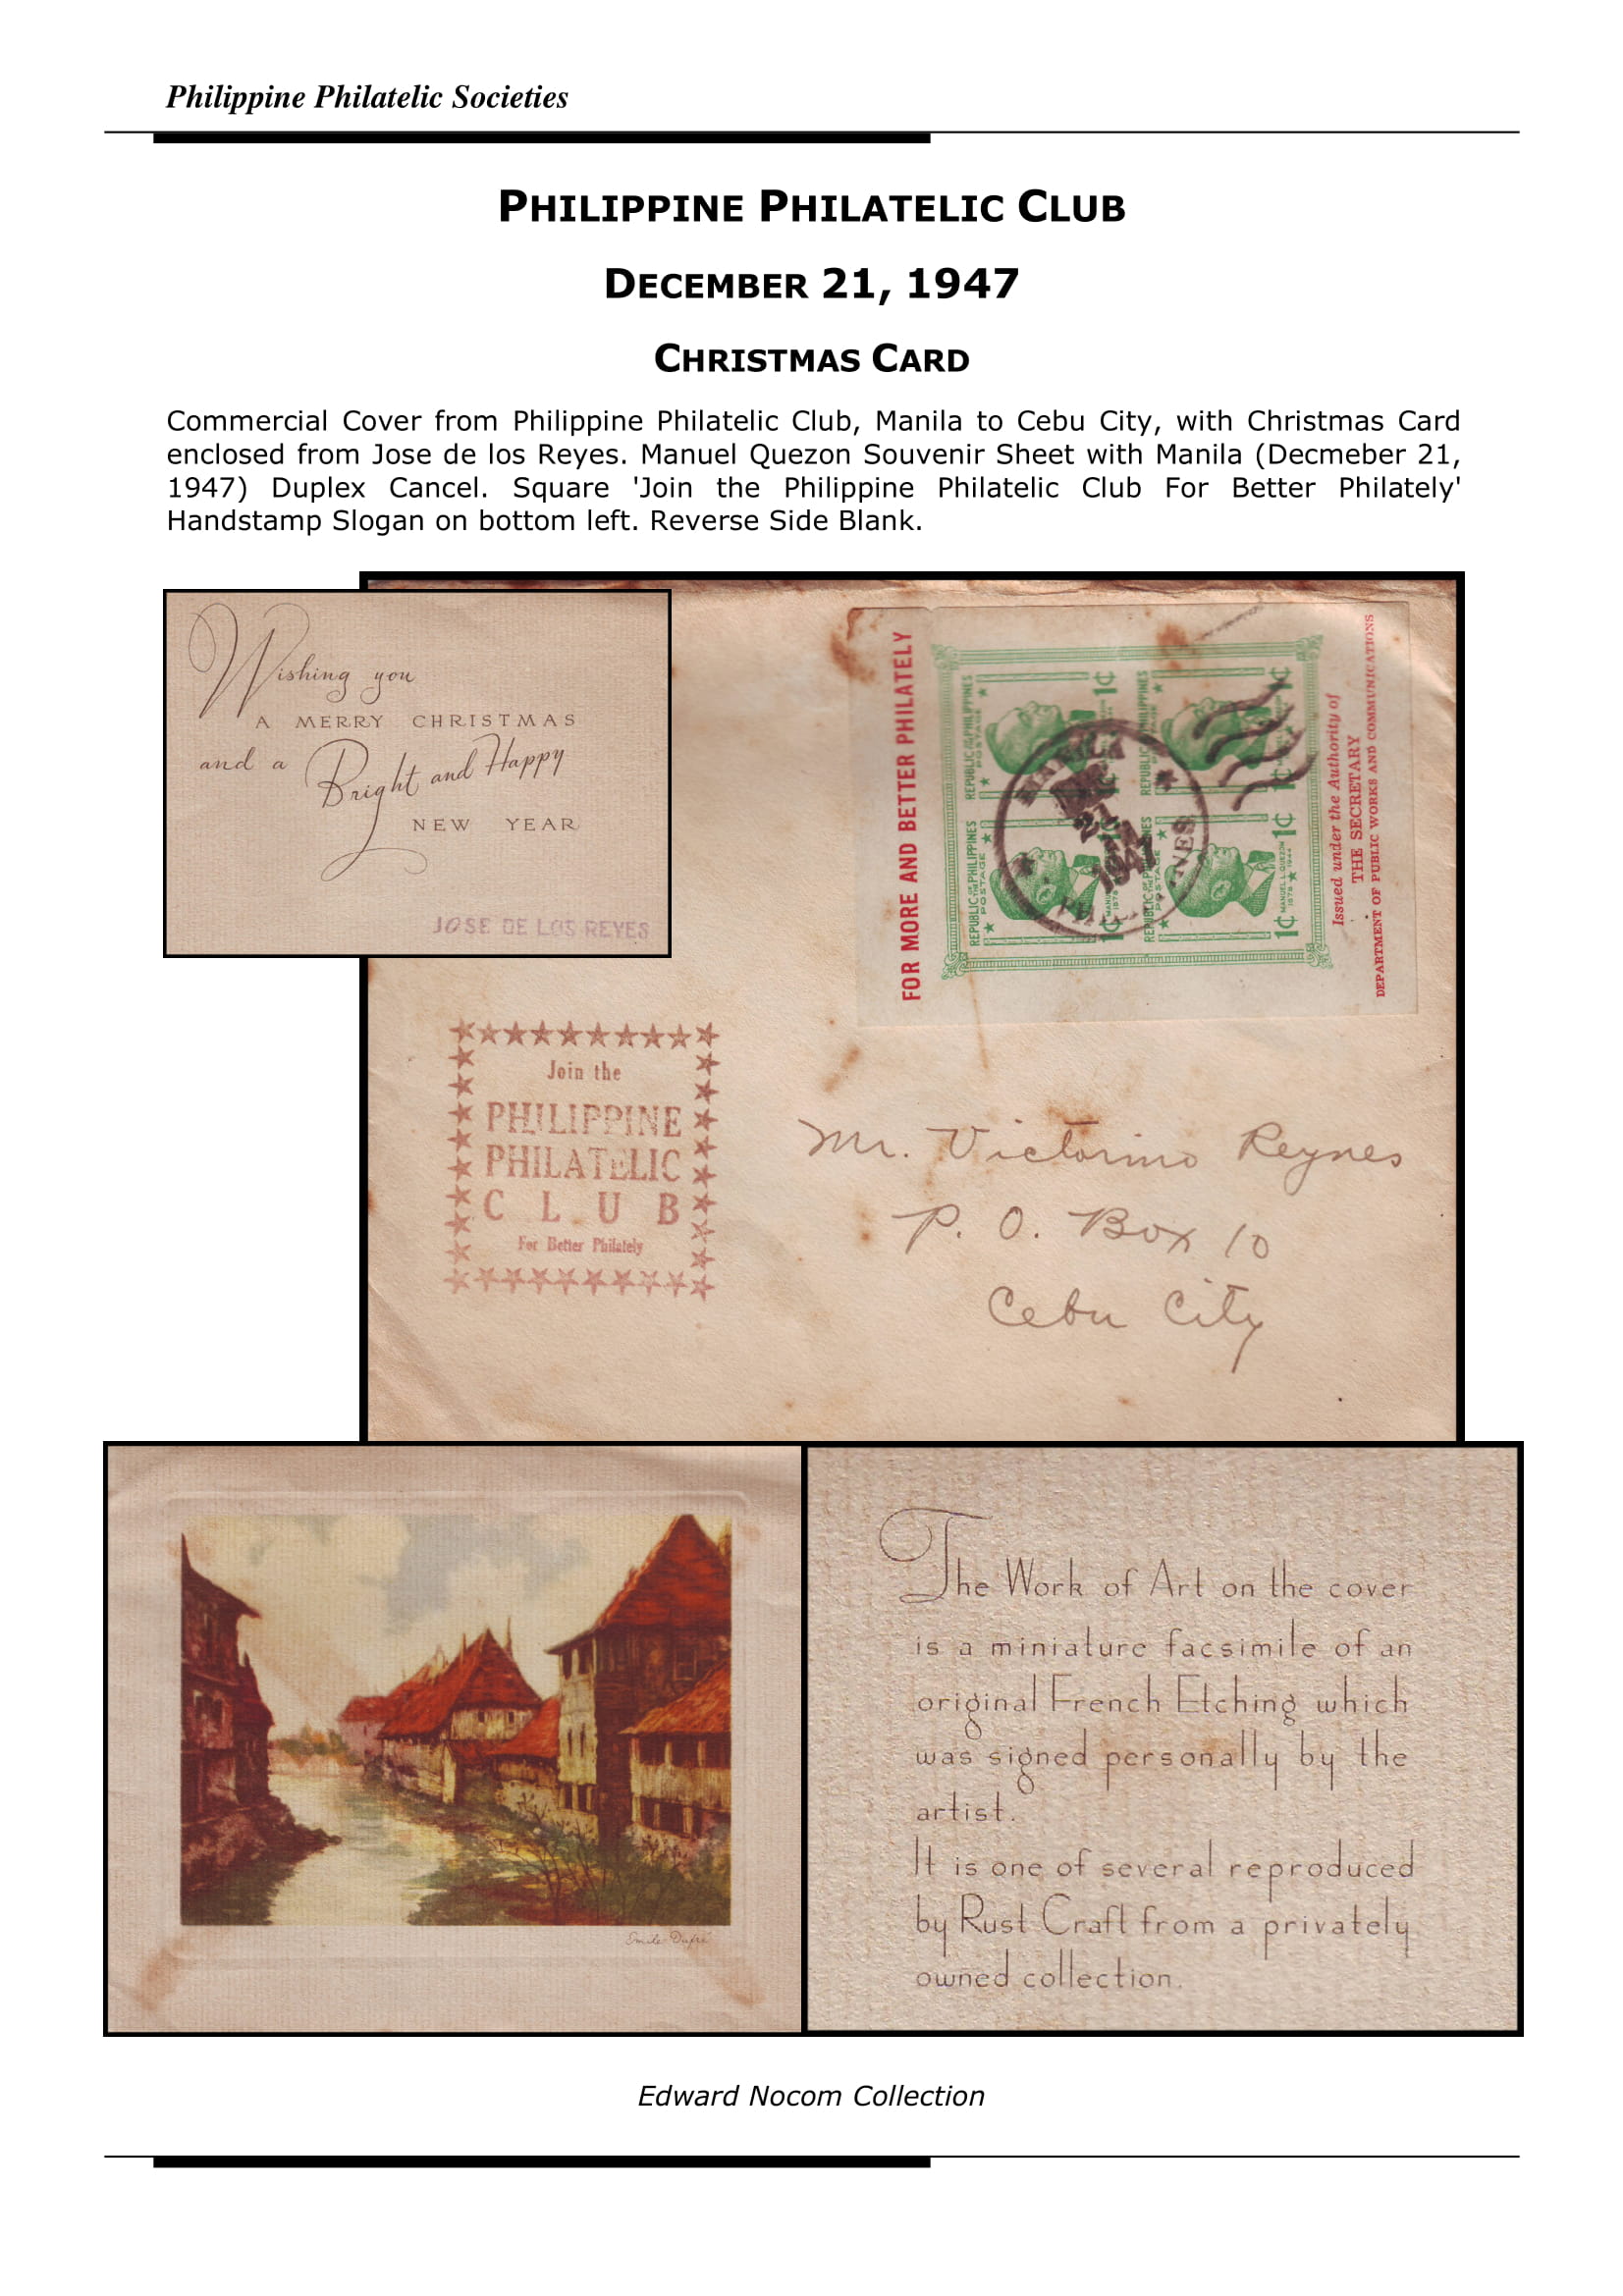 Philippine Philatelic Societies
PHILIPPINE PHILATELIC CLUB
DECEMBER 21, 1947
CHRISTMAS CARD
Commercial Cover from Philippine Philatelic Club, Manila to Cebu City, with Christmas Card
enclosed from Jose de los Reyes. Manuel Quezon Souvenir Sheet with Manila (Decmeber 21,
1947) Duplex Cancel. Square 'Join the Philippine Philatelic Club For Better Philately'
Handstamp Slogan on bottom left. Reverse Side Blank.
Wishing you
A MERRY CHRISTMAS
and a Bright and Happy
NEW YEAR
JOSE DE LOS REYES
FOR MORE AND BETTER PHILATELY
REPUBLIC OF THE PHILIPPINES
POSTAGE
1¢
MANUEL L. QUEZON
1878 1944
REPUBLIC OF THE PHILIPPINES
POSTAGE
1¢
REPUBLIC OF THE PHILIPPINES
POSTAGE
1¢
REPUBLIC OF THE PHILIPPINES
POSTAGE
1¢
MANILA
21
1947
PHILIPPINES
Issued under the Authority of
THE SECRETARY
DEPARTMENT OF PUBLIC WORKS AND COMMUNICATIONS
Join the
PHILIPPINE
PHILATELIC
CLUB
For Better Philately
Mr. Victorino Reynes
P. O. Box 10
Cebu City
Emile Dufré
The Work of Art on the cover
is a miniature facsimile of an
original French Etching which
was signed personally by the
artist.
It is one of several reproduced
by Rust Craft from a privately
owned collection.
Edward Nocom Collection